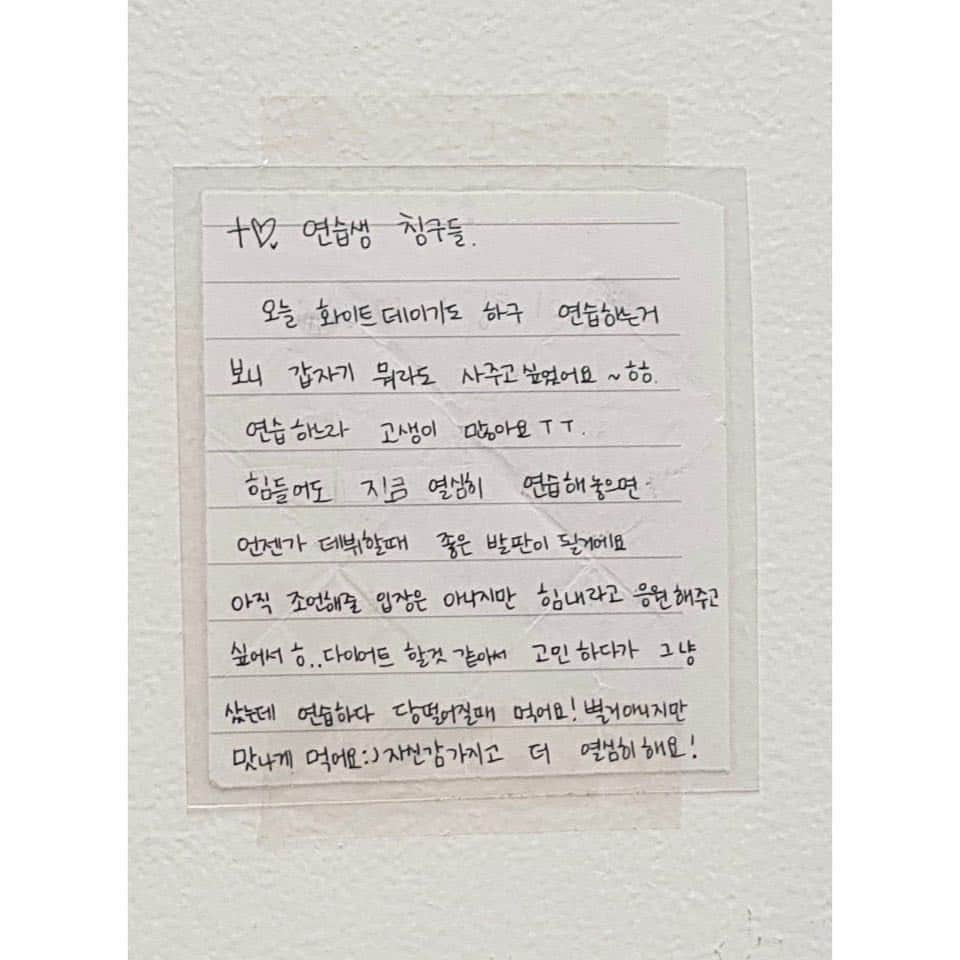 +♡ 연습생 칭구들.
오늘 화이트데이기도 하구 연습하는거
보니 갑자기 뭐라도 사주고싶었어요 ~ㅎㅎ.
연습하느라 고생이 많아요ㅜㅜ.
힘들어도 지금 열심히 연습해놓으면
언젠가 데뷔할때 좋은 발판이 될거에요
아직 조언해줄 입장은 아니지만 힘내라고 응원해주고
싶어서 ㅎ..다이어트 할것 같아서 고민하다가 그냥
샀는데 연습하다 당떨어질때 먹어요! 별거아니지만
맛나게 먹어요:) 자신감가지고 더 열심히해요!